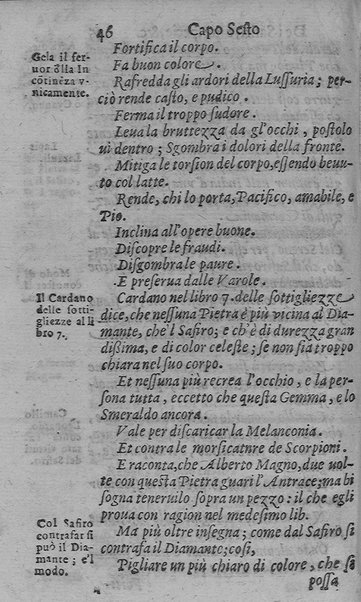 46 Capo Sesto
Fortifica il corpo.
Gela il fer-
uor dlla In
cotinẽza v-
nicamente.
Fa buon colore.
Rafredda gli ardori della Lussuria; per-
ciò rende casto, e pudico.
Ferma il troppo sudore.
Leua la bruttezza da gl'occhi, postolo
ui dentro; Sgombra i dolori della fronte.
Mitiga le torsion del corpo, essendo beuu-
to col latte.
Rende, chi lo porta, Pacifico, amabile, e
Pio.
Inclina all'opere buone.
Discopre le fraudi.
Disgombra le paure.
E preserua dalle Varole.
Il Cardano
delle sotti-
gliezze al li
bro 7.
Cardano nel libro 7. delle sottigliezze
dice, che nessuna Pietra è più vicina al Dia-
mante, che'l Safiro; e ch'è di durezza gran
dissima, e di color celeste; se non sia troppo
chiara nel suo corpo.
Et nessuna più recrea l'occhio, e la per-
sona tutta, eccetto che questa Gemma, e lo
Smeraldo ancora.
Vale per discaricar la Melanconia.
Et contra le morsicatnre de Scorpioni.
E raconta, che Alberto Magno, due uol-
te con questa Pietra guarì l'Antrace; ma bi
sogna teneruilo sopra un pezzo: il che egli
proua con ragion nel medesimo lib.
Col Safiro
contrafar si
può il Dia-
mante; e'l
modo.
Ma più oltre insegna; come dal Safiro si
contrafa il Diamante; così,
Pigliare un più chiaro di colore, che si
possa